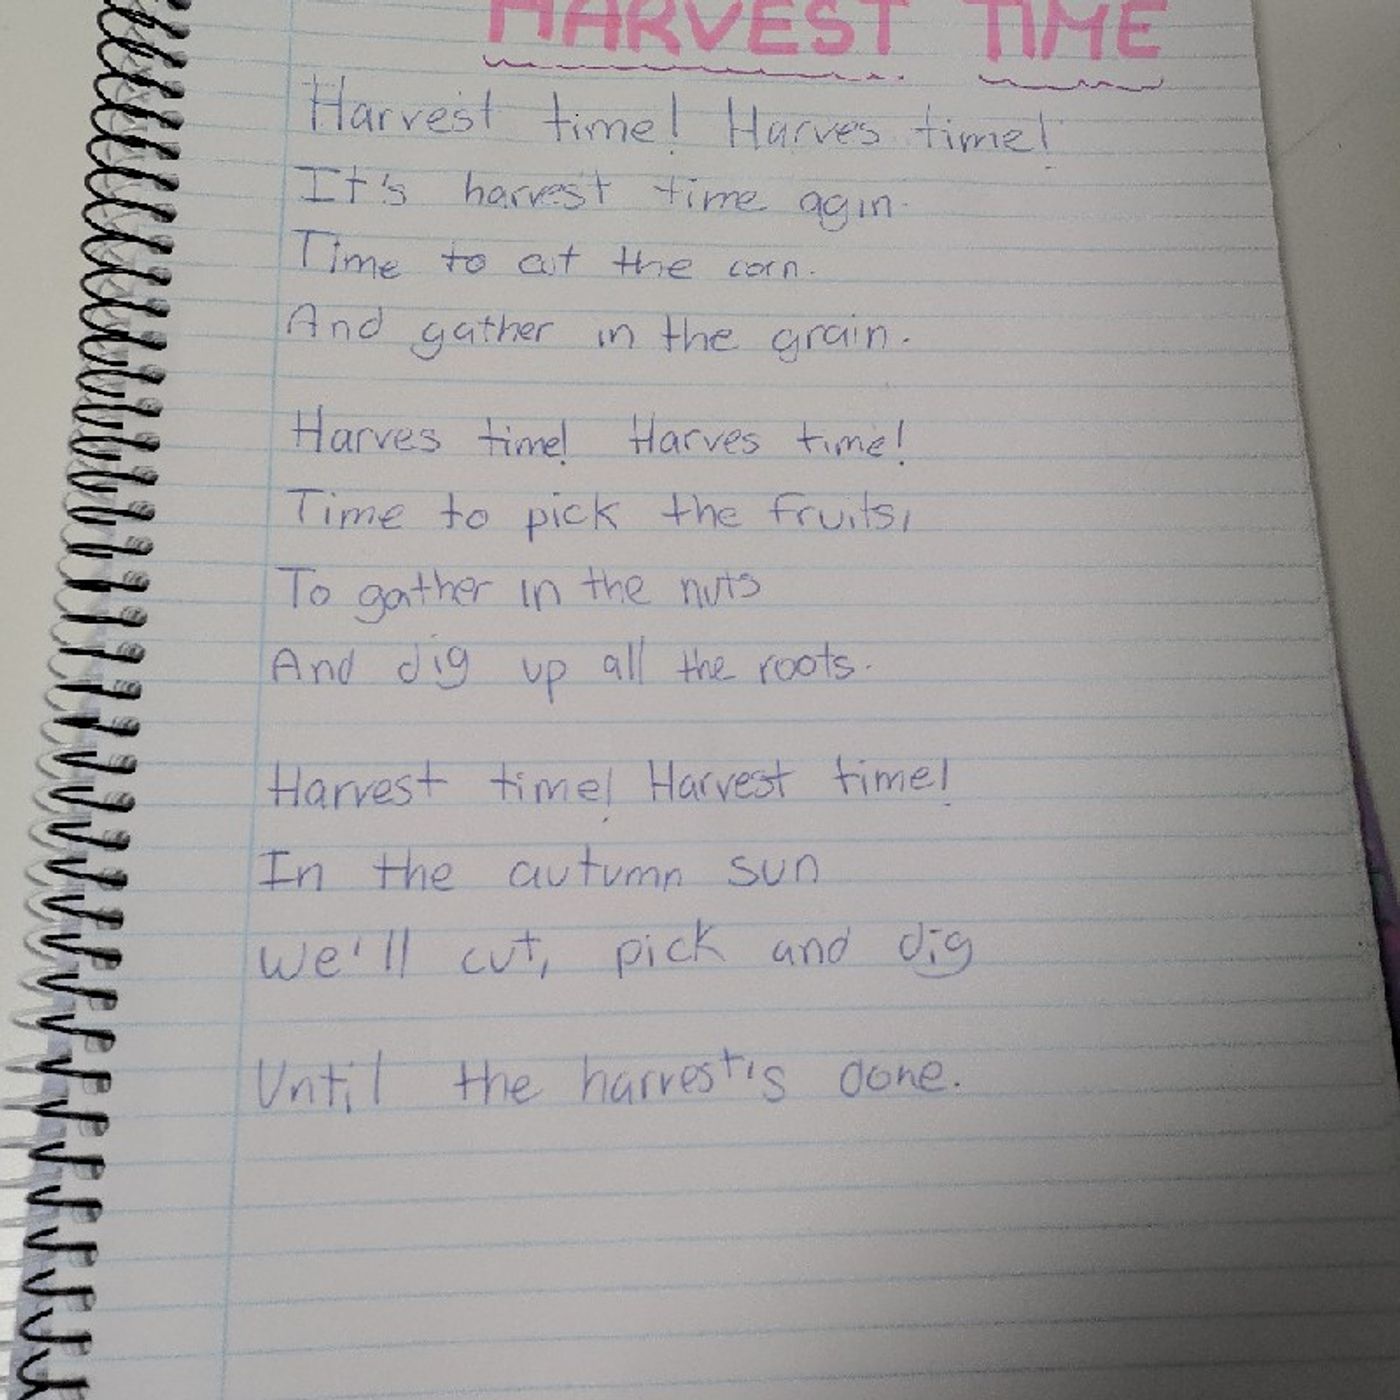 HARVEST TIME
Harvest time! Harves time!
It's harvest time agin.
Time to cut the corn.
And gather in the grain.
Harves time! Harves time!
Time to pick the fruits,
To gather in the nuts
And dig up all the roots.
Harvest time! Harvest time!
In the autumn sun
We'll cut, pick and dig
Until the harvest is done.